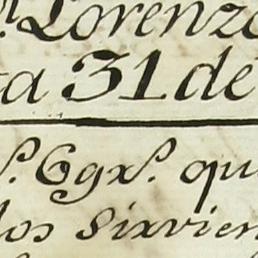 Lorenzo
ta 31 de
s. Egrs. qu
los sirvien